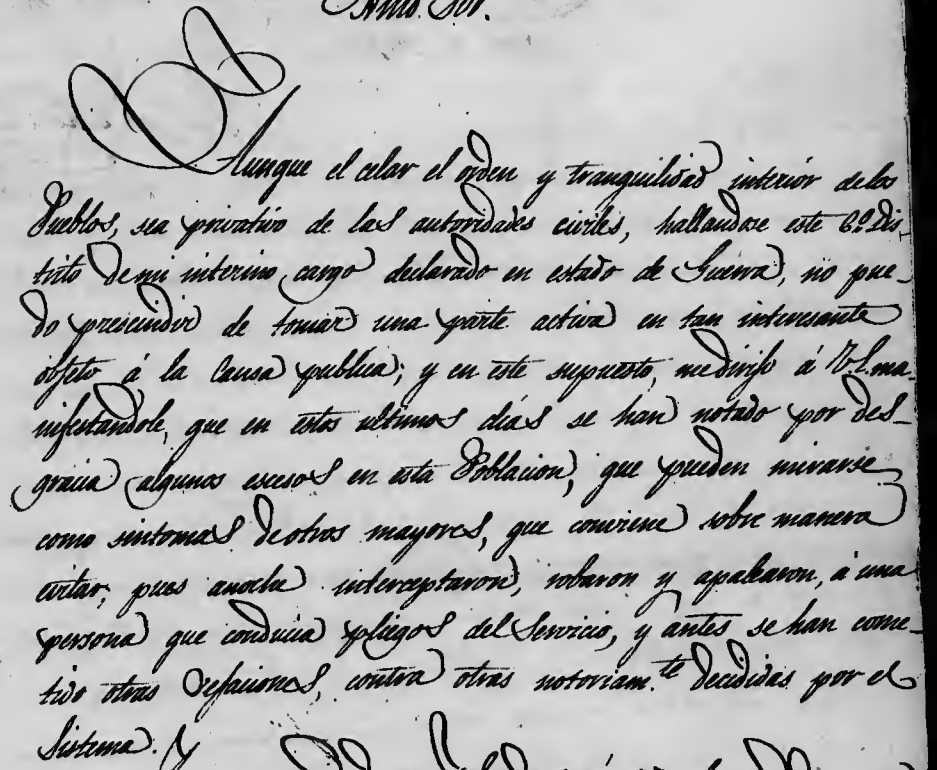 Yllmo. Sor.
Aunque el celar el orden y tranquilidad interior de los
Pueblos, sea privativo de las autoridades civiles, hallandose este 6.º Dis
trito de mi interino cargo declarado en estado de Guerra, no pue-
do prescindir de tomar una parte activa en tan interesante
objeto á la Causa publica; y en este supuesto, me dirijo á V.I. ma
nifestandole, que en estos ultimos dias se han notado por des-
gracia algunos escesos en esta Poblacion, que pueden mirarse
como sintomas de otros mayores, que conviene sobre manera
evitar; pues anoche interceptaron, robaron y apalearon, á una
persona que conducia pliegos del servicio, y antes se han come-
tido otras vejaciones, contra otras notoriam.te decididas por el
Sistema. Y